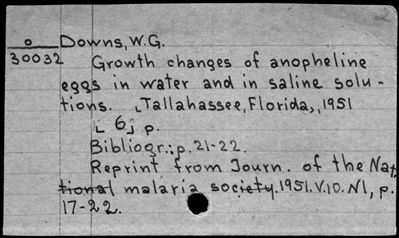 o Downs, W.G.
30032 Growth changes of anopheline
eggs in water and in saline solu-
tions. [Tallahassee, Florida, 1951
[6] p.
Bibliogr.: p. 21-22.
Reprint from Journ. of the Nat.
tional malaria society. 1951. V.10. N1, p.
17-22.